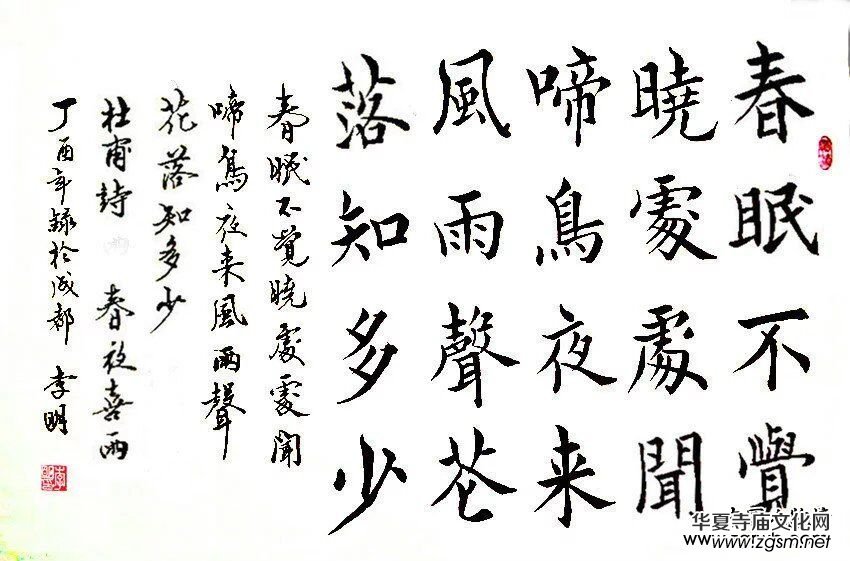 春眠不覺
曉處處聞
啼鳥夜来
風雨聲花
落知多少
春眠不覺曉處處聞
啼鳥夜来風雨聲
花落知多少
杜甫詩 春夜喜雨
丁酉年録於成都 李明
华夏寺庙文化网
www.zgsm.net